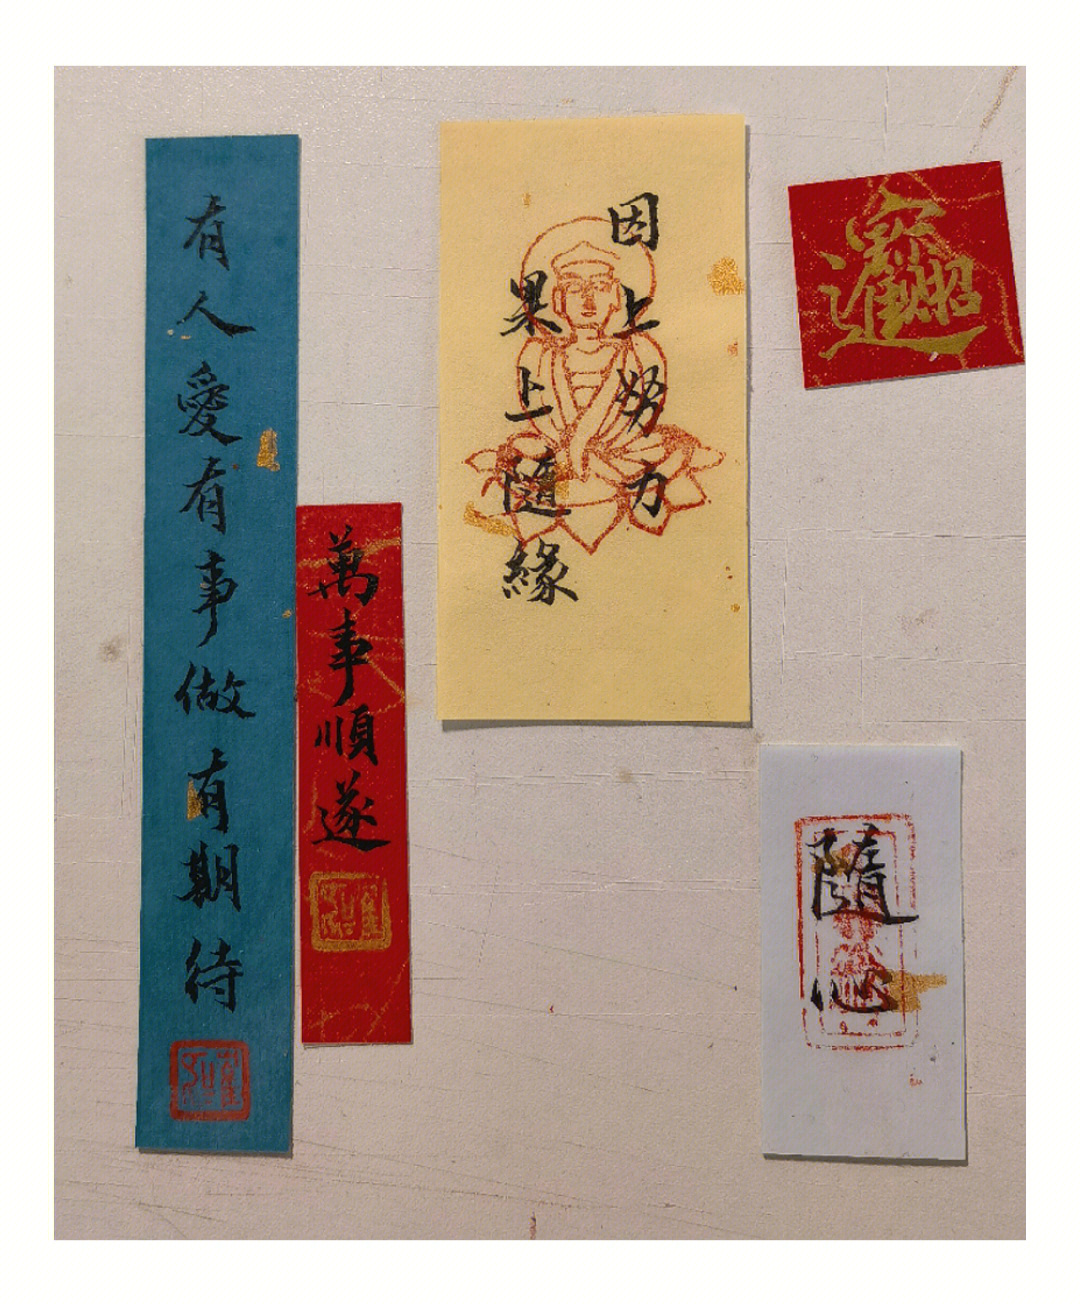 有人愛有事做有期待
萬事順遂
因上努力
果上隨緣
招財進寶
隨心